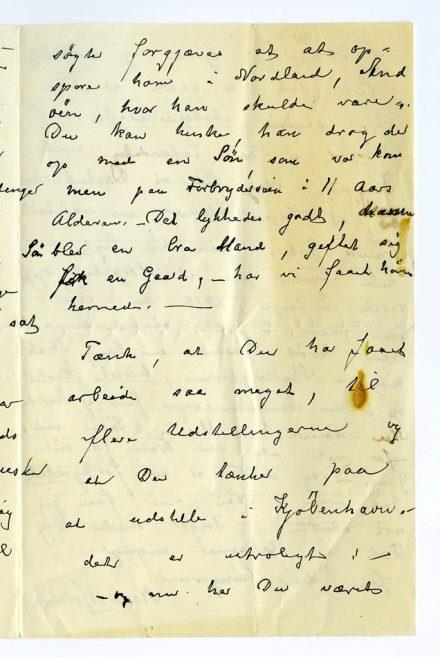 søgte forgjæves at at op=
spore ham i Nordland, And
øen, hvor han skulde være.
Du kan huske, han drog der
op med en Søn, som var kom
men paa Forbryderveien i 11 Aars
Alderen. – Det lykkedes godt,
Søn blev en bra Mand, giftet sig
fik en Gaard, – har vi faaet høre
hernede. —
Tænk, at Du har faaet
arbeide saa meget, til
flere Udstillingerne og
at Du tænker paa
at udstille i Kjøbenhavn. –
det er utroligt! –
– og nu har Du været